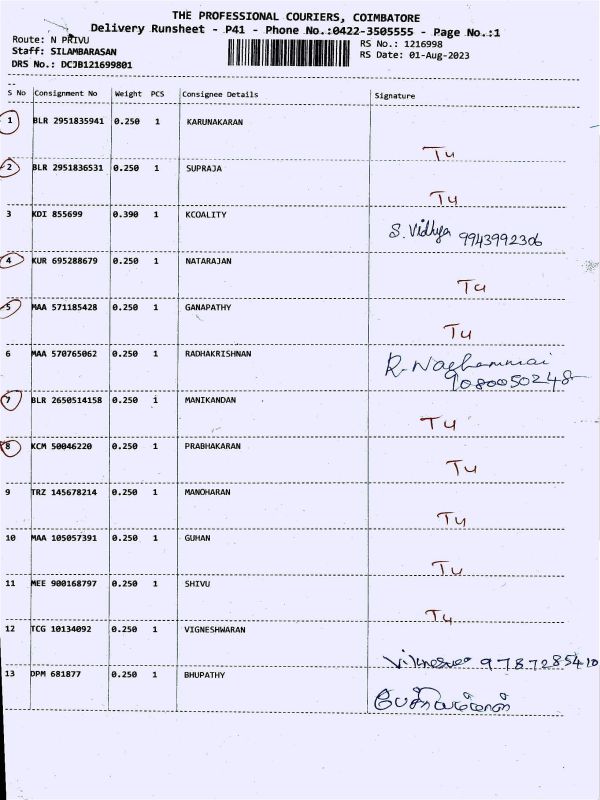 THE PROFESSIONAL COURIERS, COIMBATORE
Delivery Runsheet - P41 - Phone No.:0422-3505555 - Page No.:1
Route: N PRIVU
RS No.: 1216998
Staff: SILAMBARASAN
RS Date: 01-Aug-2023
DRS No.: DCJB121699801
S No Consignment No Weight PCS Consignee Details Signature
1 BLR 2951835941 0.250 1 KARUNAKARAN
Tu
2 BLR 2951836531 0.250 1 SUPRAJA
Tu
3 KDI 855699 0.390 1 KCOALITY
S. Vidhya 9943992306
4 KUR 695288679 0.250 1 NATARAJAN
Tu
5 MAA 571185428 0.250 1 GANAPATHY
Tu
6 MAA 570765062 0.250 1 RADHAKRISHNAN
R. Naghammai
9080050248
7 BLR 2650514158 0.250 1 MANIKANDAN
Tu
8 KCM 50046220 0.250 1 PRABHAKARAN
Tu
9 TRZ 145678214 0.250 1 MANOHARAN
Tu
10 MAA 105057391 0.250 1 GUHAN
Tu
11 MEE 900168797 0.250 1 SHIVU
Tu
12 TCG 10134092 0.250 1 VIGNESHWARAN
9787285410
13 DPM 681877 0.250 1 BHUPATHY